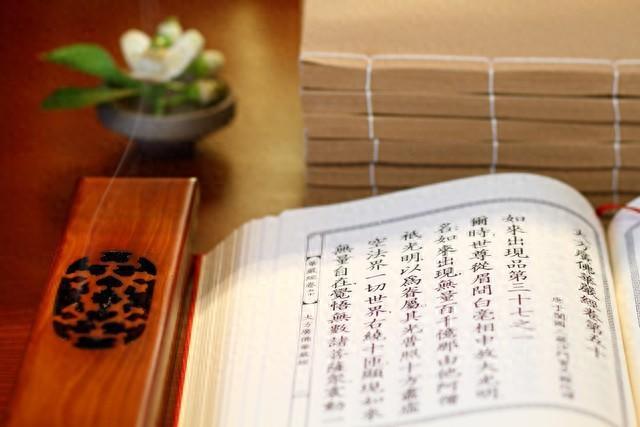 大方廣佛華嚴經卷第五十
唐于闐國三藏沙門實叉難陀譯
如來出現品第三十七之一
爾時世尊從眉間白毫相中放大光明
名如來出現無量百千億那由他阿僧
祇光明以為眷屬其光普照十方盡虛
空法界一切世界右繞十匝顯現如來
無量自在覺悟無數諸菩薩眾震動一
華嚴經卷五十
大方廣佛華嚴經